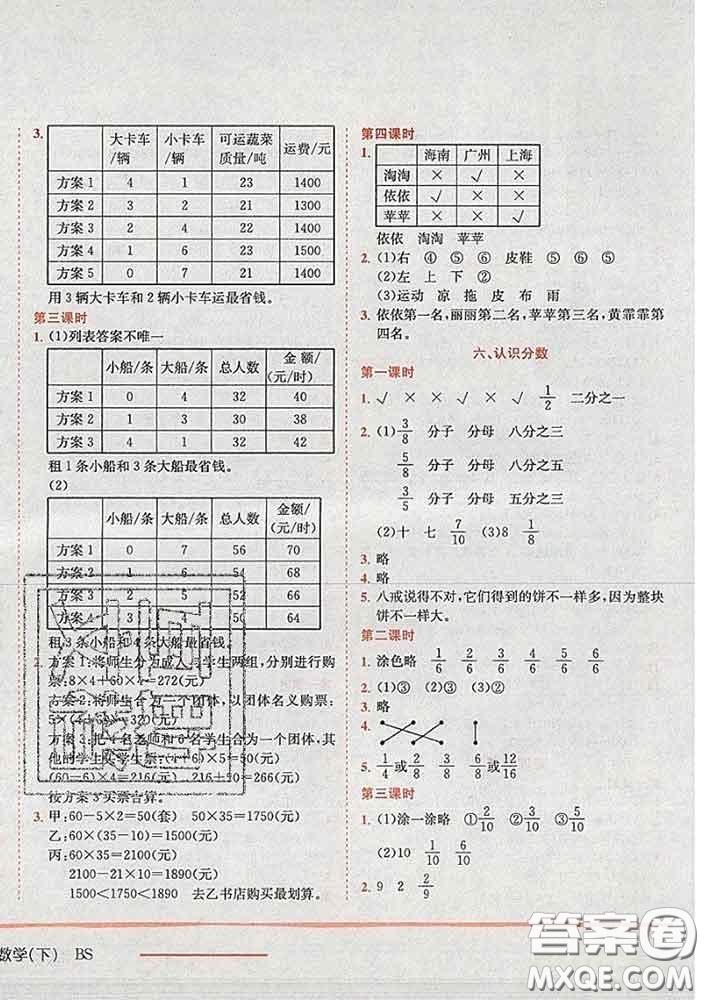 3.
大卡车/辆 小卡车/辆 可运蔬菜质量/吨 运费/元
方案1 4 1 23 1400
方案2 3 2 21 1300
方案3 2 4 22 1400
方案4 1 6 23 1500
方案5 0 7 21 1400
用3辆大卡车和2辆小卡车运最省钱。
第三课时
1. (1)列表答案不唯一
小船/条 大船/条 总人数 金额/(元/时)
方案1 0 4 32 40
方案2 1 3 30 38
方案3 4 1 32 42
租1条小船和3条大船最省钱。
(2)
小船/条 大船/条 总人数 金额/(元/时)
方案1 0 7 56 70
方案2 1 6 54 68
方案3 2 5 52 66
方案4 3 4 50 64
租3条小船和4条大船最省钱。
2. 方案1:将师生分为成人与学生两组,分别进行购
票:8×4+60×4=272(元)
方案2:将师生合为一个团体,以团体名义购票:
5×(4+60)=320(元)
方案3:把4名老师和6名学生合为一个团体,其
他的学生买学生票:(4+6)×5=50(元)
(60-6)×4=216(元) 216+50=266(元)
按方案3买票合算。
3. 甲:60-5×2=50(套) 50×35=1750(元)
乙:60×(35-10)=1500(元)
丙:60×35=2100(元)
2100-21×10=1890(元)
1500<1750<1890 去乙书店购买最划算。
第四课时
1.
海南 广州 上海
淘淘 × √ ×
依依 √ × ×
苹苹 × × √
依依 淘淘 苹苹
2. (1)右 ④ ⑤ ⑥ 皮鞋 ⑤ ⑥ ⑤
(2)左 上 下 ②
(3)运动 凉 拖 皮 布 雨
3. 依依第一名,丽丽第二名,苹苹第三名,黄霏霏第
四名。
六、认识分数
第一课时
1. √ × × √ × √ 1/2 二分之一
2. (1)3/8 分子 分母 八分之三
5/8 分子 分母 八分之五
3/5 分子 分母 五分之三
(2)十 七 7/10 (3)8 1/8
3. 略
4. 略
5. 八戒说得不对,它们得到的饼不一样多,因为整块
饼不一样大。
第二课时
1. 涂色略 1/6 2/6 3/6 4/6 5/6
2. (1)③ (2)③
3. 略
4.
5. 1/4或2/8 3/8 6/8或12/16
第三课时
1. (1)涂一涂略 ①2/10 ③5/10
(2)10 1/10 6/10 3/10
2. 9 2 2/9
数学(下) BS
答案圈
MXQE.COM